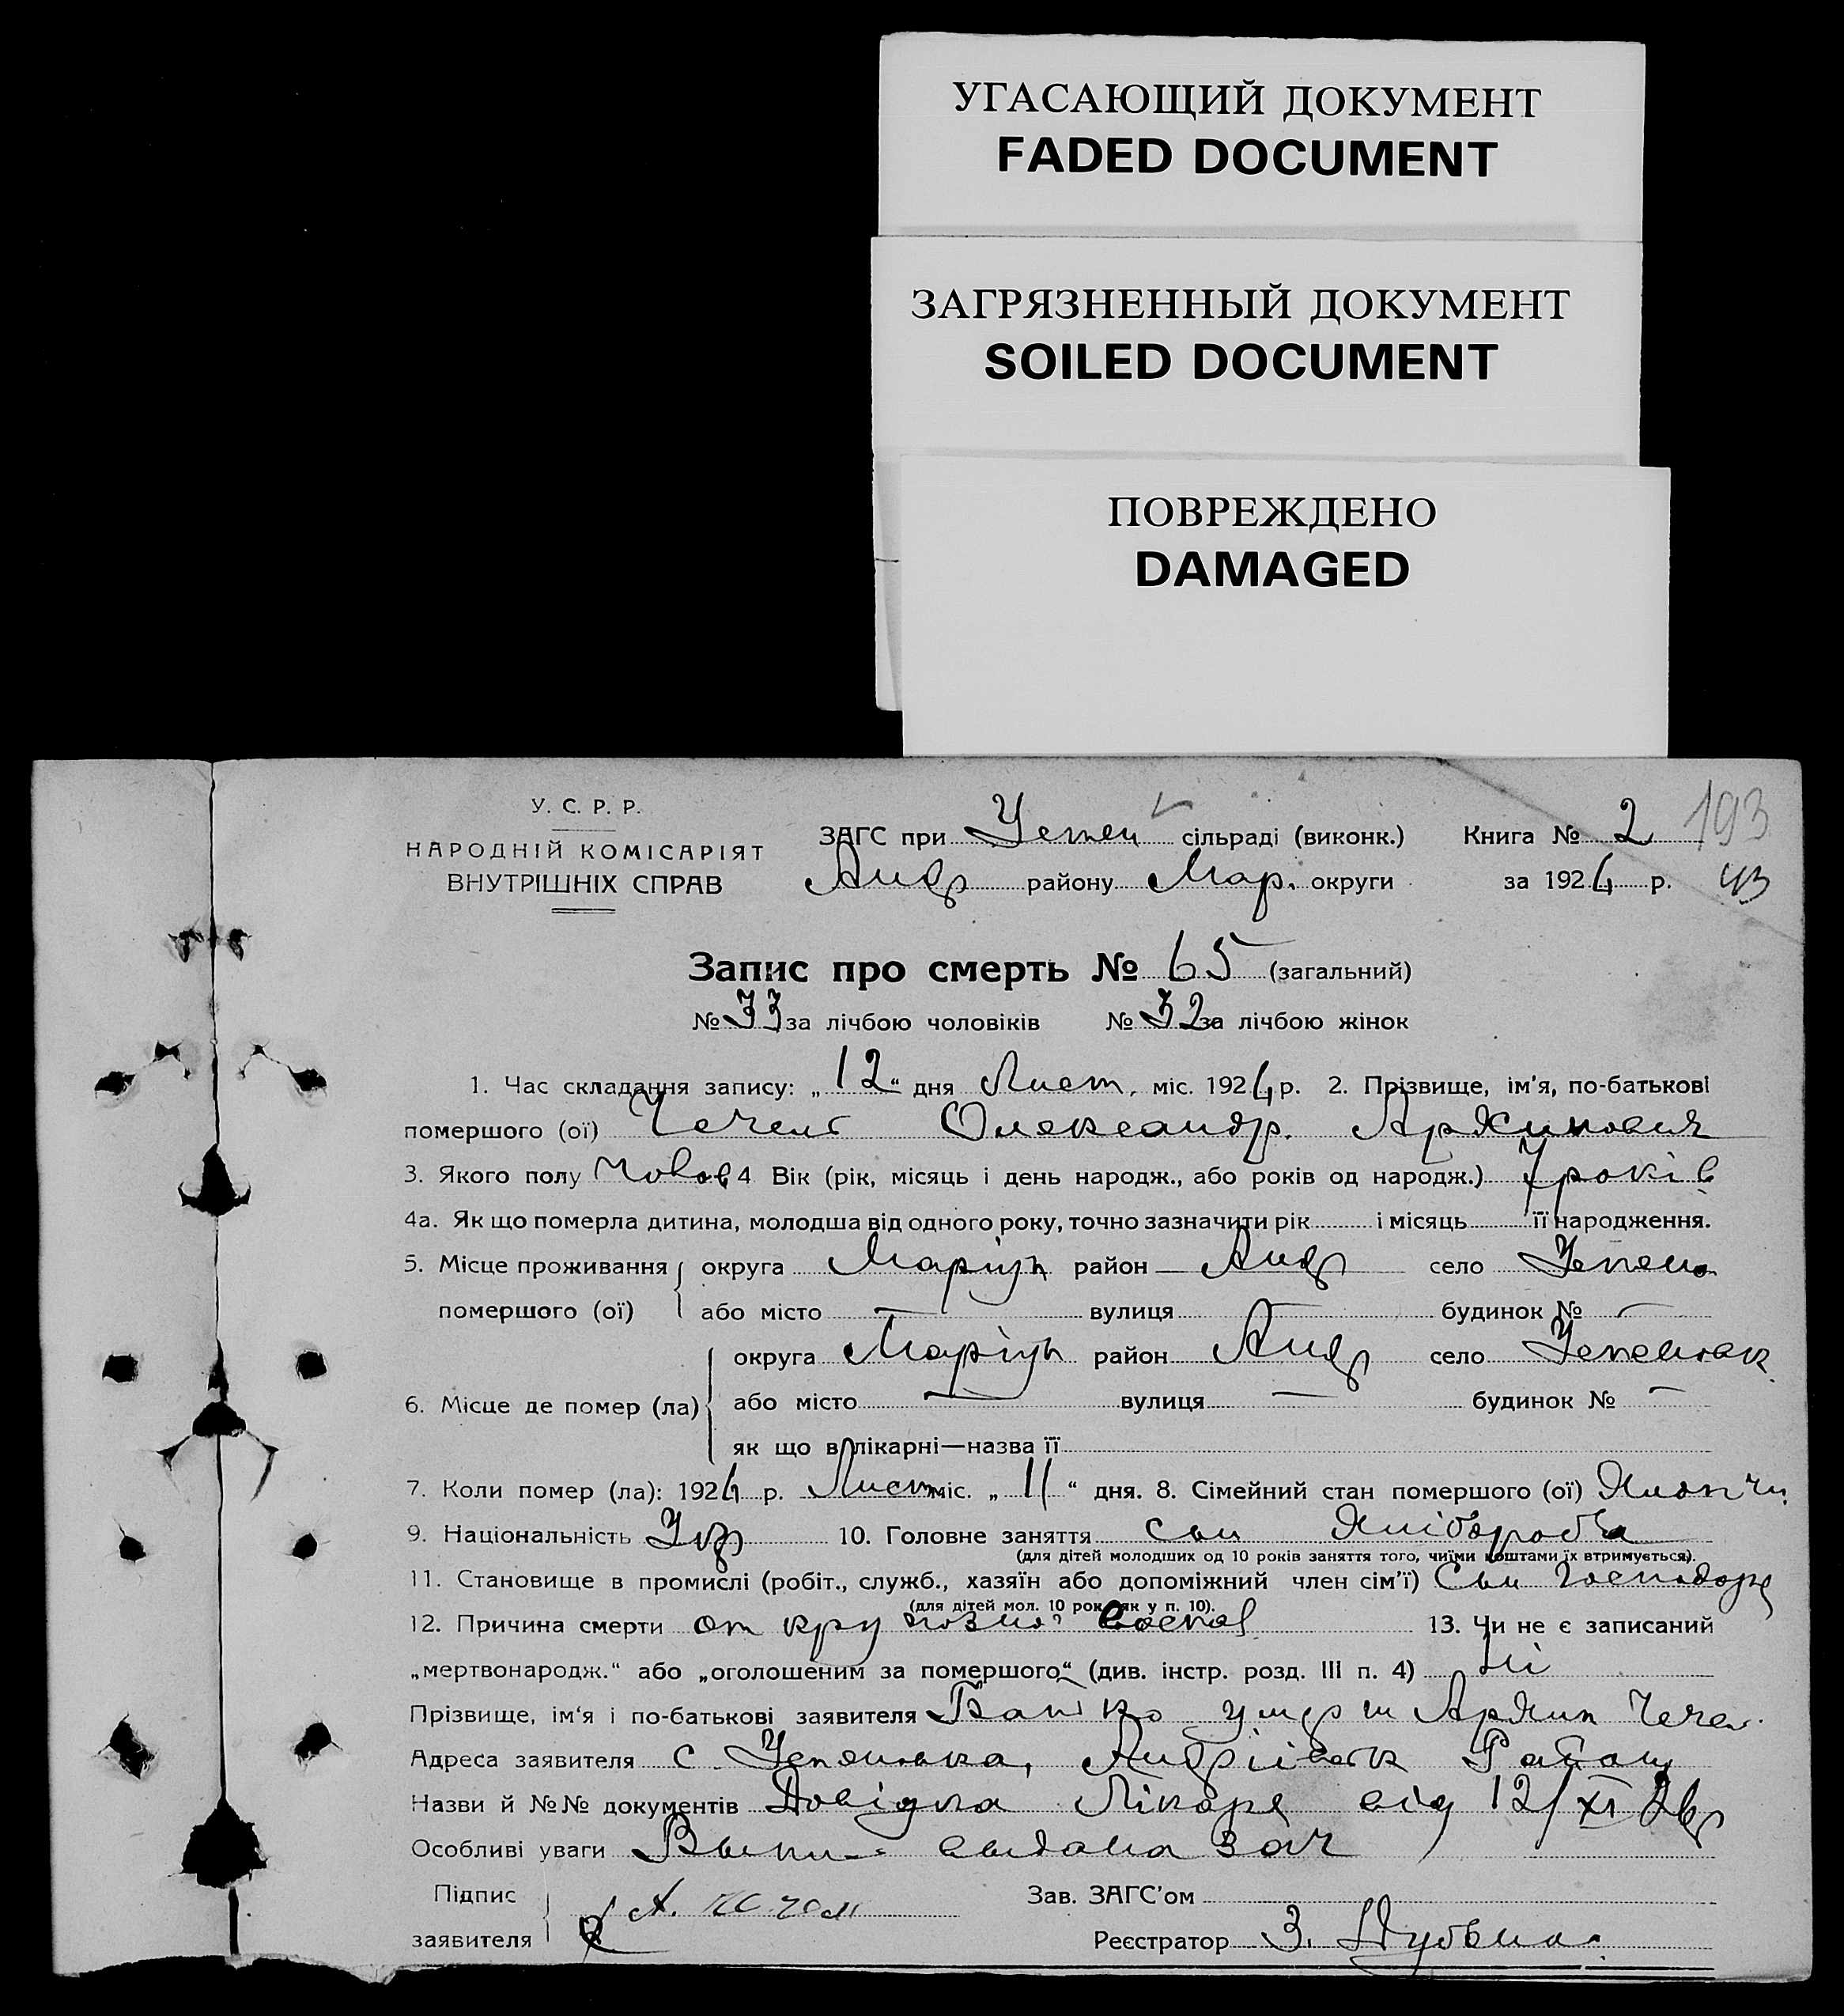 УГАСАЮЩИЙ ДОКУМЕНТ
FADED DOCUMENT
ЗАГРЯЗНЕННЫЙ ДОКУМЕНТ
SOILED DOCUMENT
ПОВРЕЖДЕНО
DAMAGED
У. С. Р. Р.
НАРОДНІЙ КОМІСАРІЯТ
ВНУТРІШНІХ СПРАВ
ЗАГС при сільраді (виконк.) Книга № 2 193
Андр району Мар. округи за 1926 р. 43
Запис про смерть № 65 (загальний)
№ 33 за лічбою чоловіків № 32 за лічбою жінок
1. Час складання запису: „12“ дня Лист. міс. 1926 р. 2. Прізвище, ім'я, по-батькові
помершого (ої) Чечель Олександр. Архипович
3. Якого полу Чолов 4 Вік (рік, місяць і день народж., або років од народж.) 7 років
4а. Як що померла дитина, молодша від одного року, точно зазначити рік і місяць її народження.
5. Місце проживання округа Маріуп район Андр село
помершого (ої) або місто — вулиця — будинок № —
округа Маріуп район Андр село
6. Місце де помер (ла) або місто — вулиця — будинок № —
як що в лікарні—назва її
7. Коли помер (ла): 1926 р. Лист міс. „11“ дня. 8. Сімейний стан помершого (ої)
9. Національність Укр 10. Головне заняття сын Хлібороба
(для дітей молодших од 10 років заняття того, чиїми коштами їх втримується).
11. Становище в промислі (робіт., служб., хазяїн або допоміжний член сім'ї) Сын Господаря
(для дітей мол. 10 рок. як у п. 10).
12. Причина смерти от 13. Чи не є записаний
„мертвонародж.“ або „оголошеним за помершого“ (див. інстр. розд. III п. 4) Ні
Прізвище, ім'я і по-батькові заявителя Батько Архип Чечел.
Адреса заявителя с. Андріївськ Району
Назви й №№ документів Довідка Лікаря від 12/XI 26р
Особливі уваги
Підпис
заявителя
Зав. ЗАГС'ом
Реєстратор З.